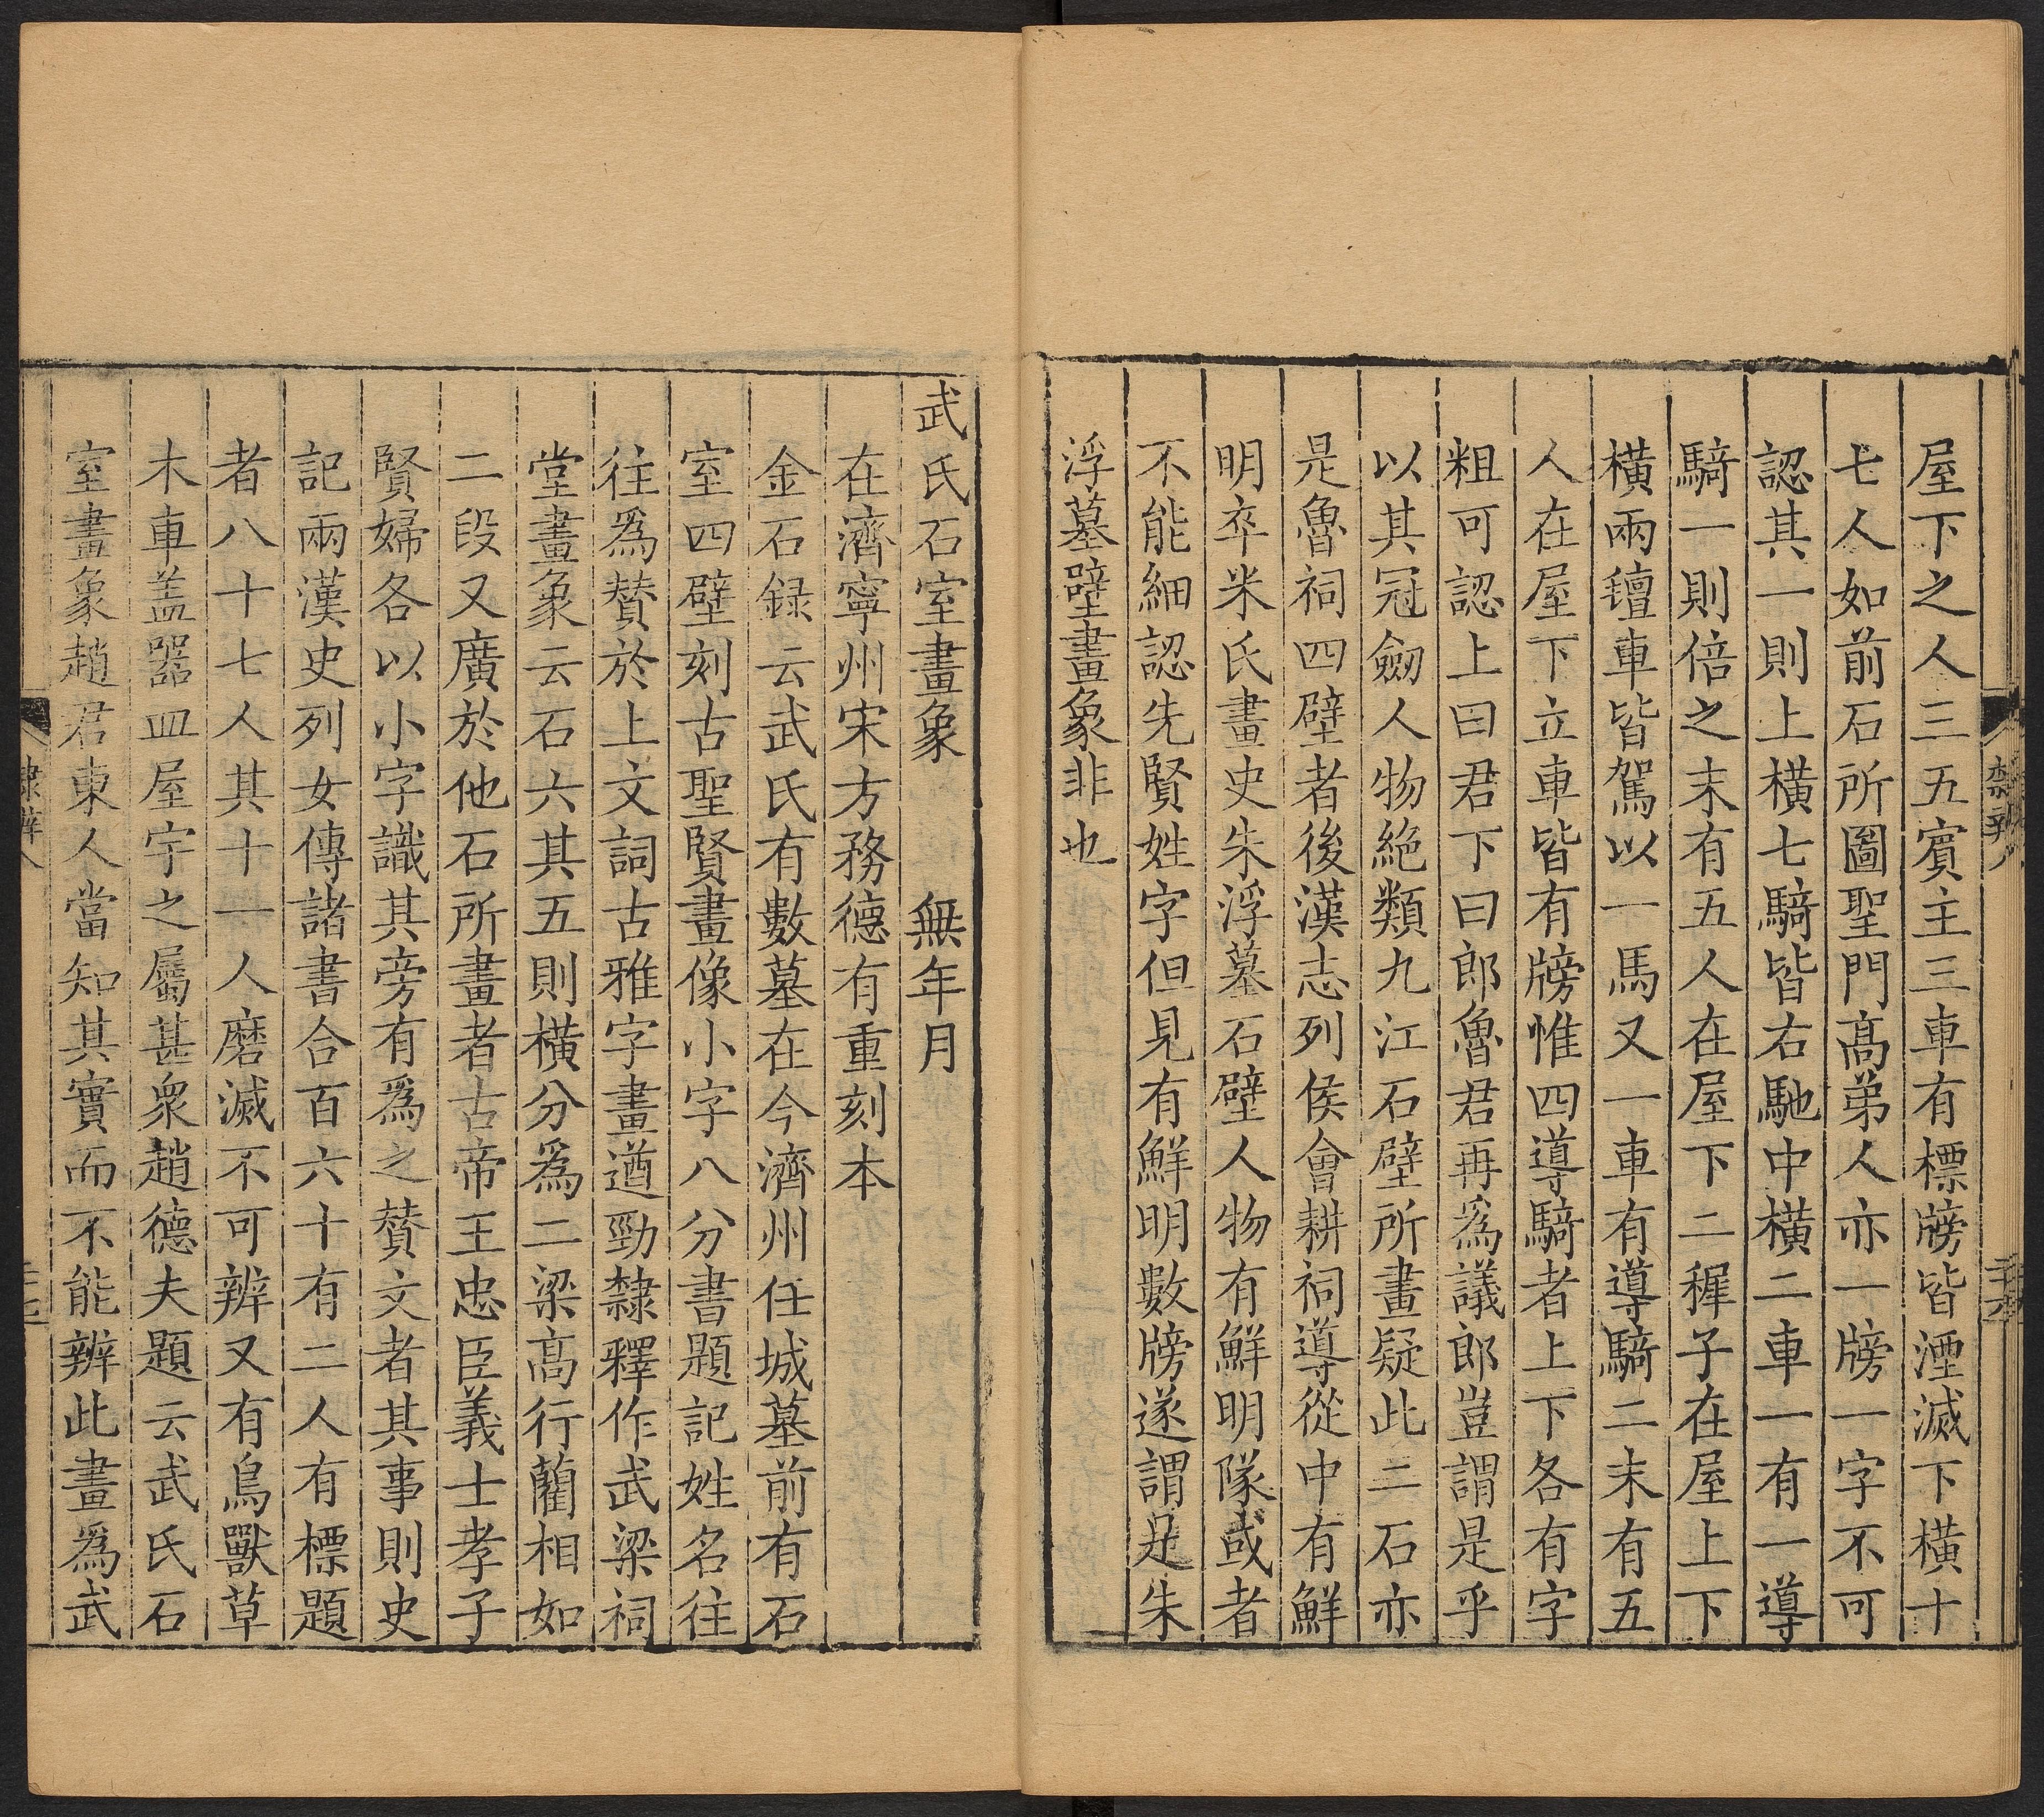 屋下之人三五賓主三車有標牓皆湮滅下橫十
七人如前石所圖聖門高弟人亦一牓一字不可
認其一則上橫七騎皆右馳中橫二車一有一導
騎一則倍之末有五人在屋下二穉子在屋上下
橫兩𨎖車皆駕以一馬又一車有導騎二末有五
人在屋下立車皆有牓惟四導騎者上下各有字
粗可認上曰君下曰郎魯君再爲議郎豈謂是乎
以其冠劒人物絶類九江石壁所畫疑此二石亦
是魯祠四壁者後漢志列侯會耕祠導從中有鮮
明卒米氏畫史朱浮墓石壁人物有鮮明隊或者
不能細認先賢姓字但見有鮮明數牓遂謂是朱
浮墓壁畫象非也
武氏石室畫象　　無年月
在濟寧州宋方務德有重刻本
金石録云武氏有數墓在今濟州任城墓前有石
室四壁刻古聖賢畫像小字八分書題記姓名往
往爲賛於上文詞古雅字畫遒勁隸釋作武梁祠
堂畫象云石六其五則橫分爲二梁高行藺相如
二段又廣於他石所畫者古帝王忠臣義士孝子
賢婦各以小字識其旁有爲之賛文者其事則史
記兩漢史列女傳諸書合百六十有二人有標題
者八十七人其十一人磨滅不可辨又有鳥獸草
木車盖器皿屋宇之屬甚衆趙德夫題云武氏石
室畫象趙君東人當知其實而不能辨此畫爲武
隸辨八